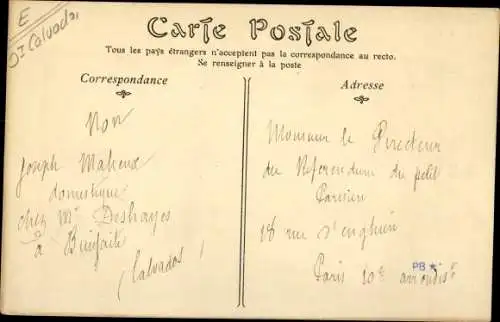 E
Dt Calvados
Carte Postale
Tous les pays étrangers n'acceptent pas la correspondance au recto.
Se renseigner à la poste
Correspondance
Non
Joseph Maheux
domestique
chez Mr Deshayes
à Bienfaite
(Calvados)
Adresse
Monsieur le Directeur
du Referendum du petit
Parisien
18 rue d'enghien
Paris 10e arrondist
PB